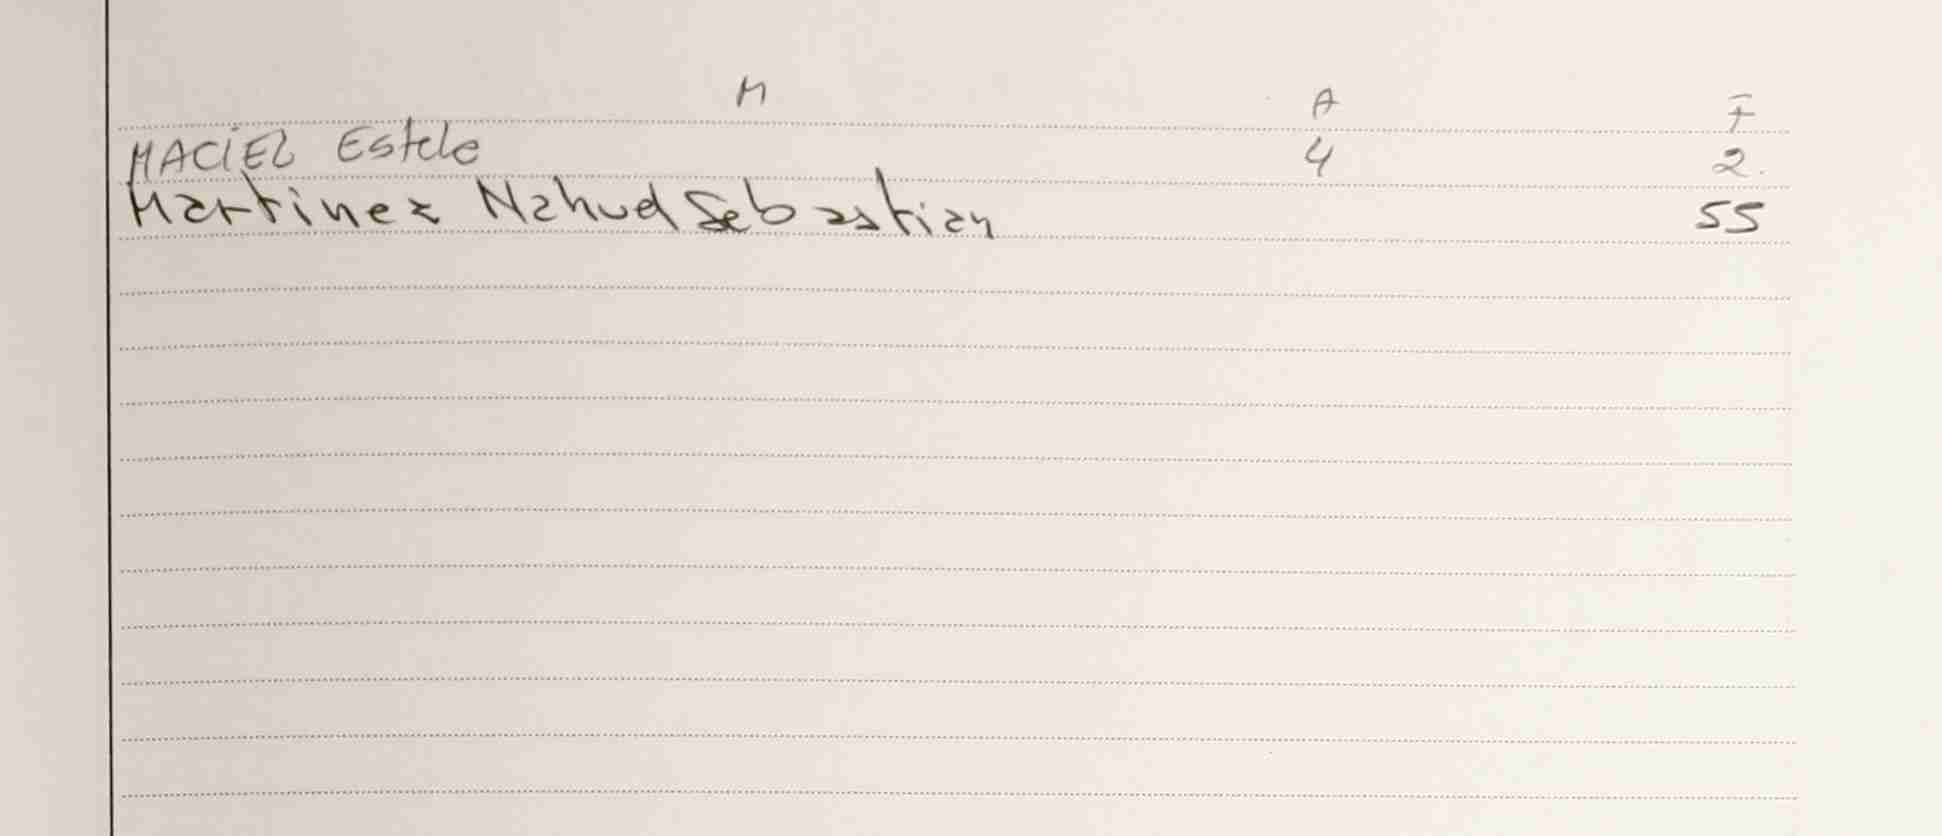 M A F
MACIEL Estela 4 2
Martinez Nahuel Sebastian 55